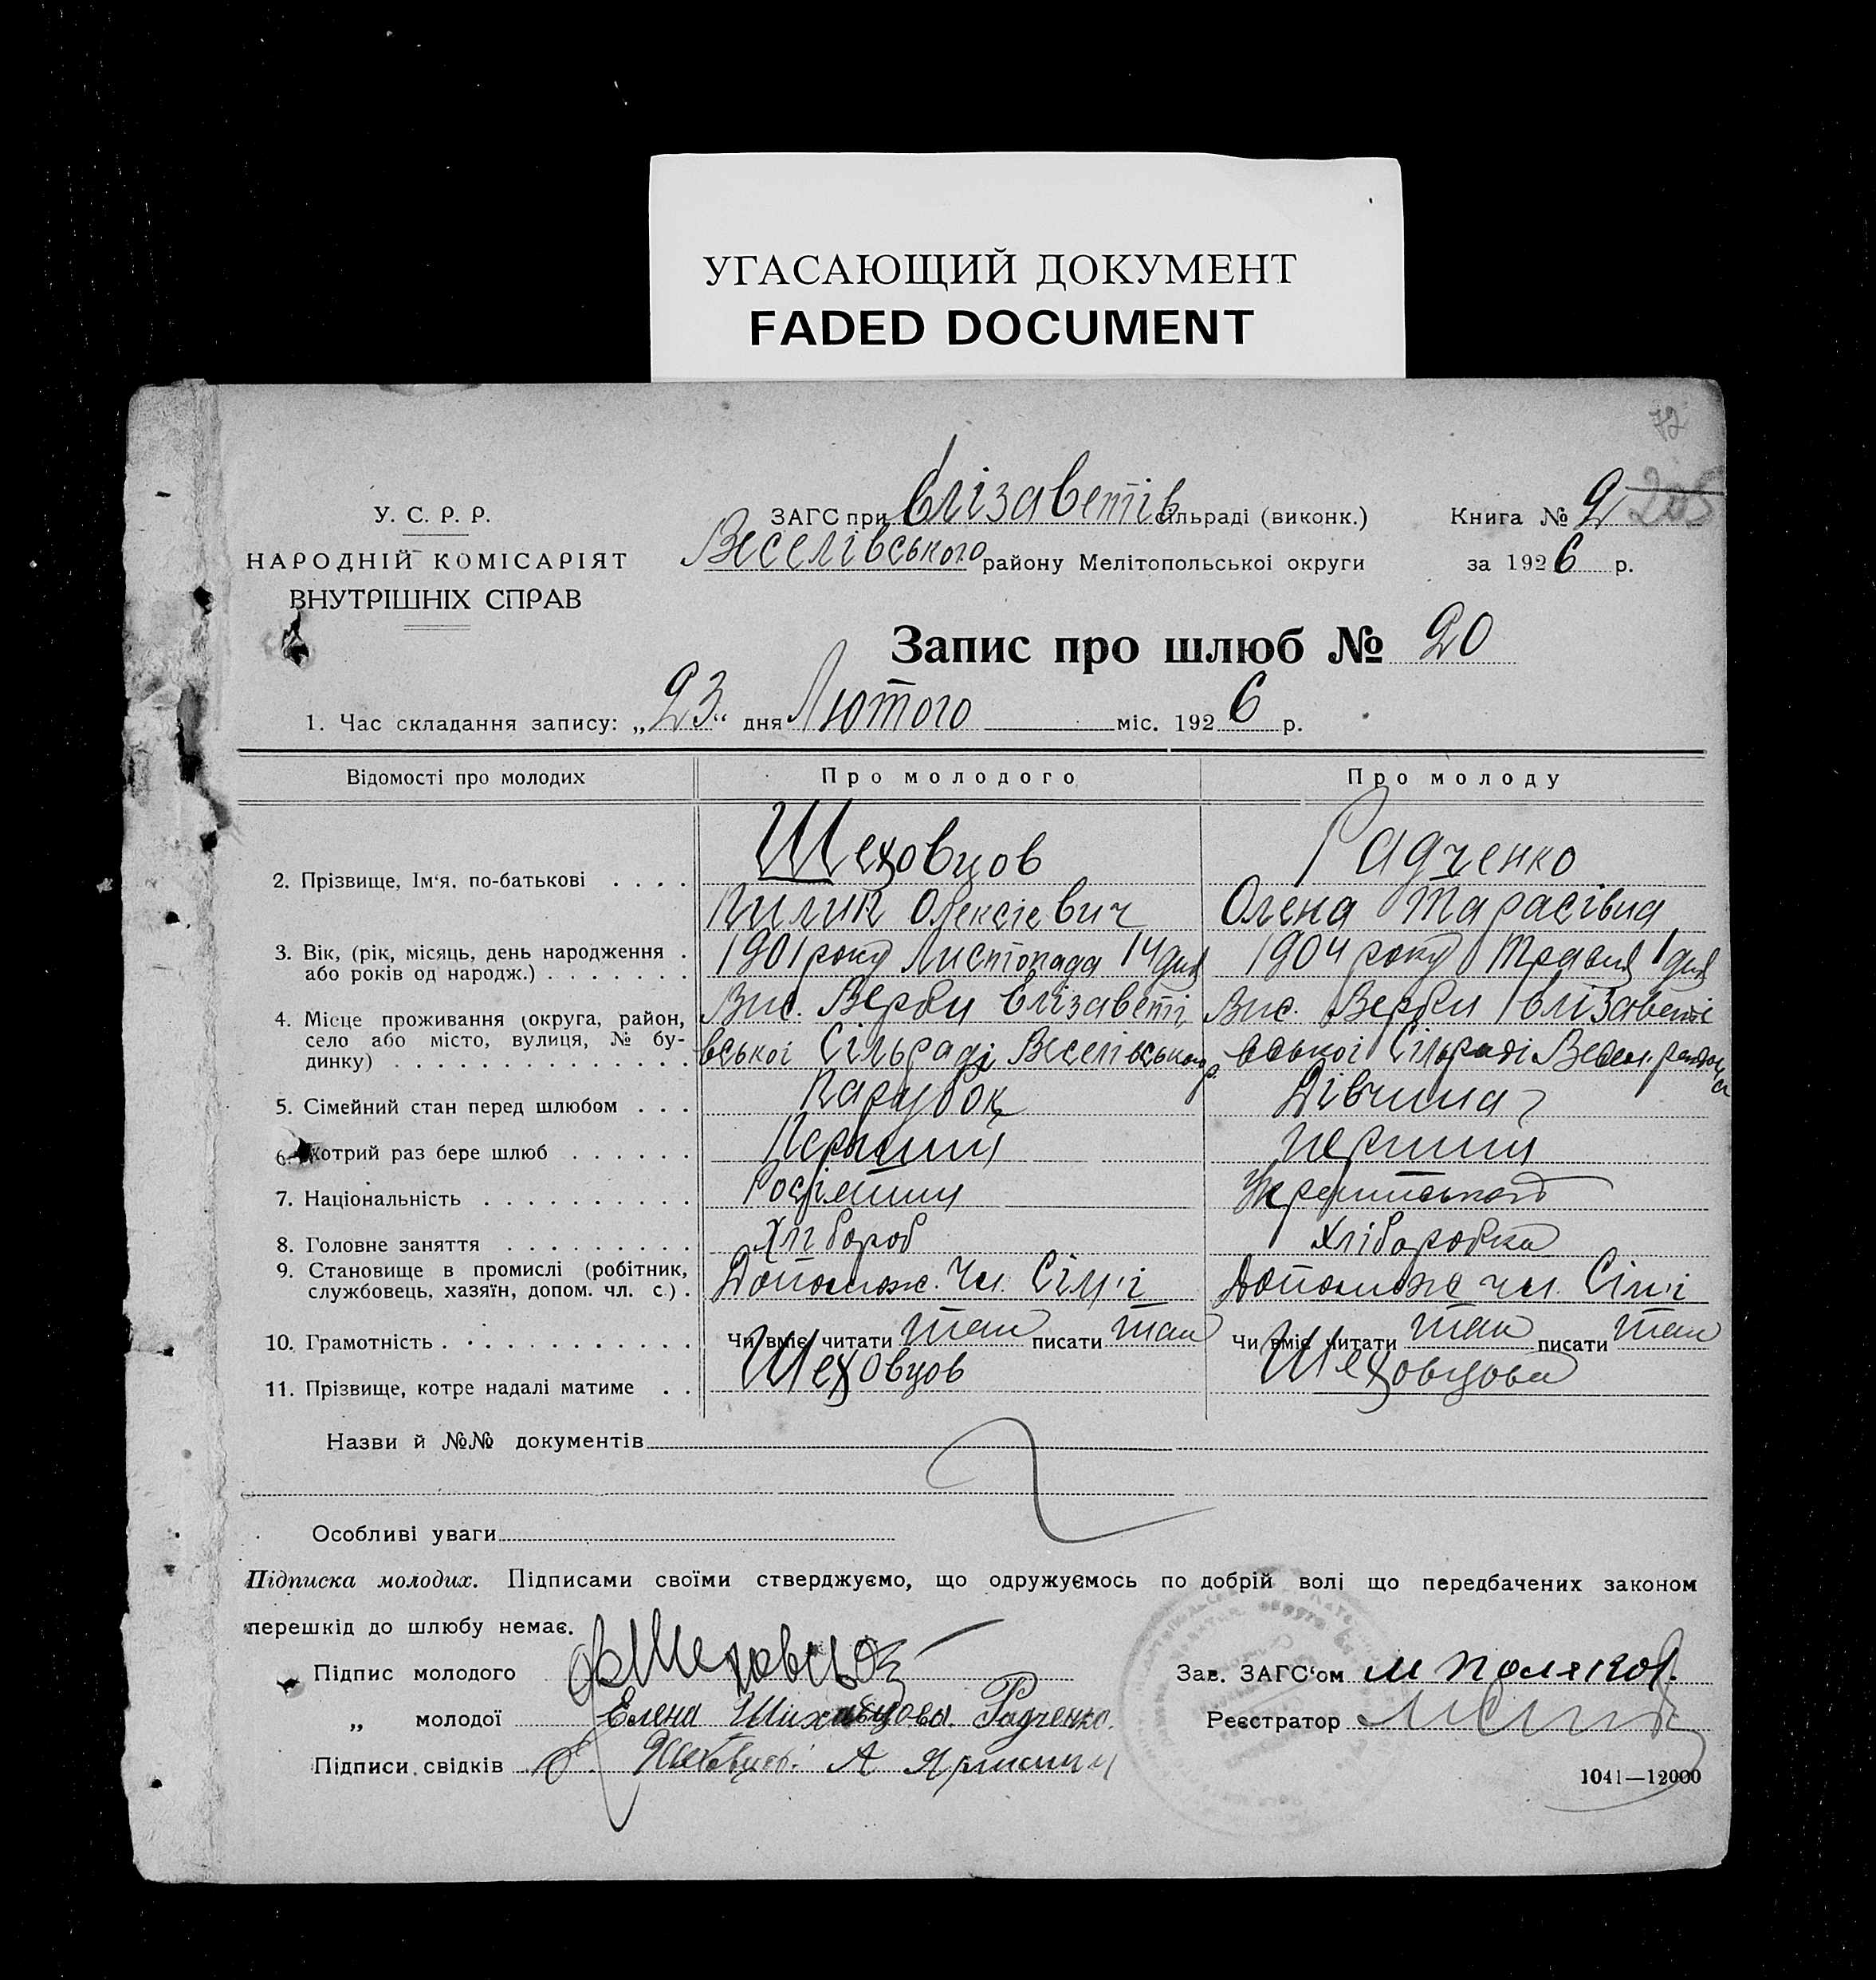 УГАСАЮЩИЙ ДОКУМЕНТ
FADED DOCUMENT
72
У. С. Р. Р.
НАРОДНІЙ КОМІСАРІЯТ
ВНУТРІШНІХ СПРАВ
ЗАГС при Єлізаветів сільраді (виконк.)
Веселівського району Мелітопольської округи
Книга № 2 205
за 1926 р.
Запис про шлюб № 20
1. Час складання запису: „23“ дня Лютого міс. 1926 р.
Відомості про молодих Про молодого Про молоду
2. Прізвище, Ім'я, по-батькові . . . . Шеховцов Радченко
Пилип Олексієвич Олена Тарасівна
3. Вік, (рік, місяць, день народження . або років од народж.) . . . . . . . 1901 року Листопада 14 дня 1904 року Травня 1 дня
4. Місце проживання (округа, район, село або місто, вулиця, № будинку) . . . . . . . . . . . . . . Вис. Верби Єлізаветі Вис. Верби Єлізаветі
вської Сільраді Веселівського р. вської Сільраді Весел. района
5. Сімейний стан перед шлюбом . . . Парубок Дівчина
6. Котрий раз бере шлюб . . . . . . Перший перший
7. Національність . . . . . . . . . . Українського
8. Головне заняття . . . . . . . . . Хлібороб Хліборобка
9. Становище в промислі (робітник, службовець, хазяїн, допом. чл. с.) . Допомож. Чл. Сім'ї Допомож чл. Сім'ї
10. Грамотність . . . . . . . . . . . Чи вміє читати так писати так Чи вміє читати так писати так
11. Прізвище, котре надалі матиме . . Шеховцов Шеховцова
Назви й №№ документів
Особливі уваги
Підписка молодих. Підписами своїми стверджуємо, що одружуємось по добрій волі що передбачених законом
перешкід до шлюбу немає.
Підпис молодого Шеховцов Зав. ЗАГС'ом М Поляков
„ молодої Елена Шиховцова Радченко. Реєстратор
Підписи свідків Шеховцов. А
1041—12000